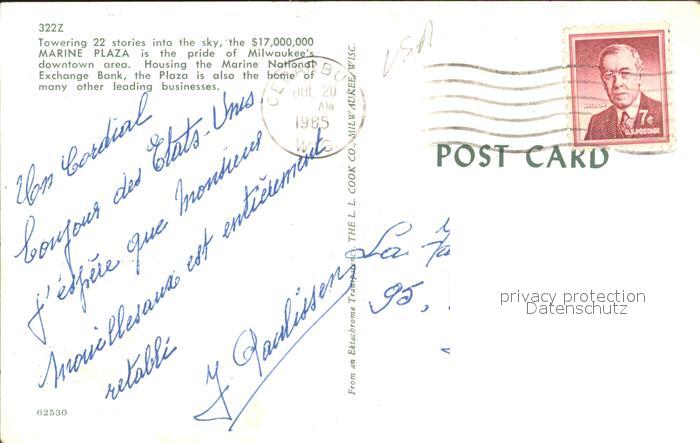 322Z
Towering 22 stories into the sky, the $17,000,000
MARINE PLAZA is the pride of Milwaukee's
downtown area. Housing the Marine National
Exchange Bank, the Plaza is also the home of
many other leading businesses.
Un Cordial
bonjour des Etats-Unis.
J'espère que Monsieur
est entièrement
retabli
J. Paulissen
62530
JUL 20
AM
1965
WIS
From an Ektachrome Transparency. THE L. L. COOK CO., MILWAUKEE, WISC.
USA
WILSON
7¢
U.S. POSTAGE
POST CARD
La
95,
privacy protection
Datenschutz